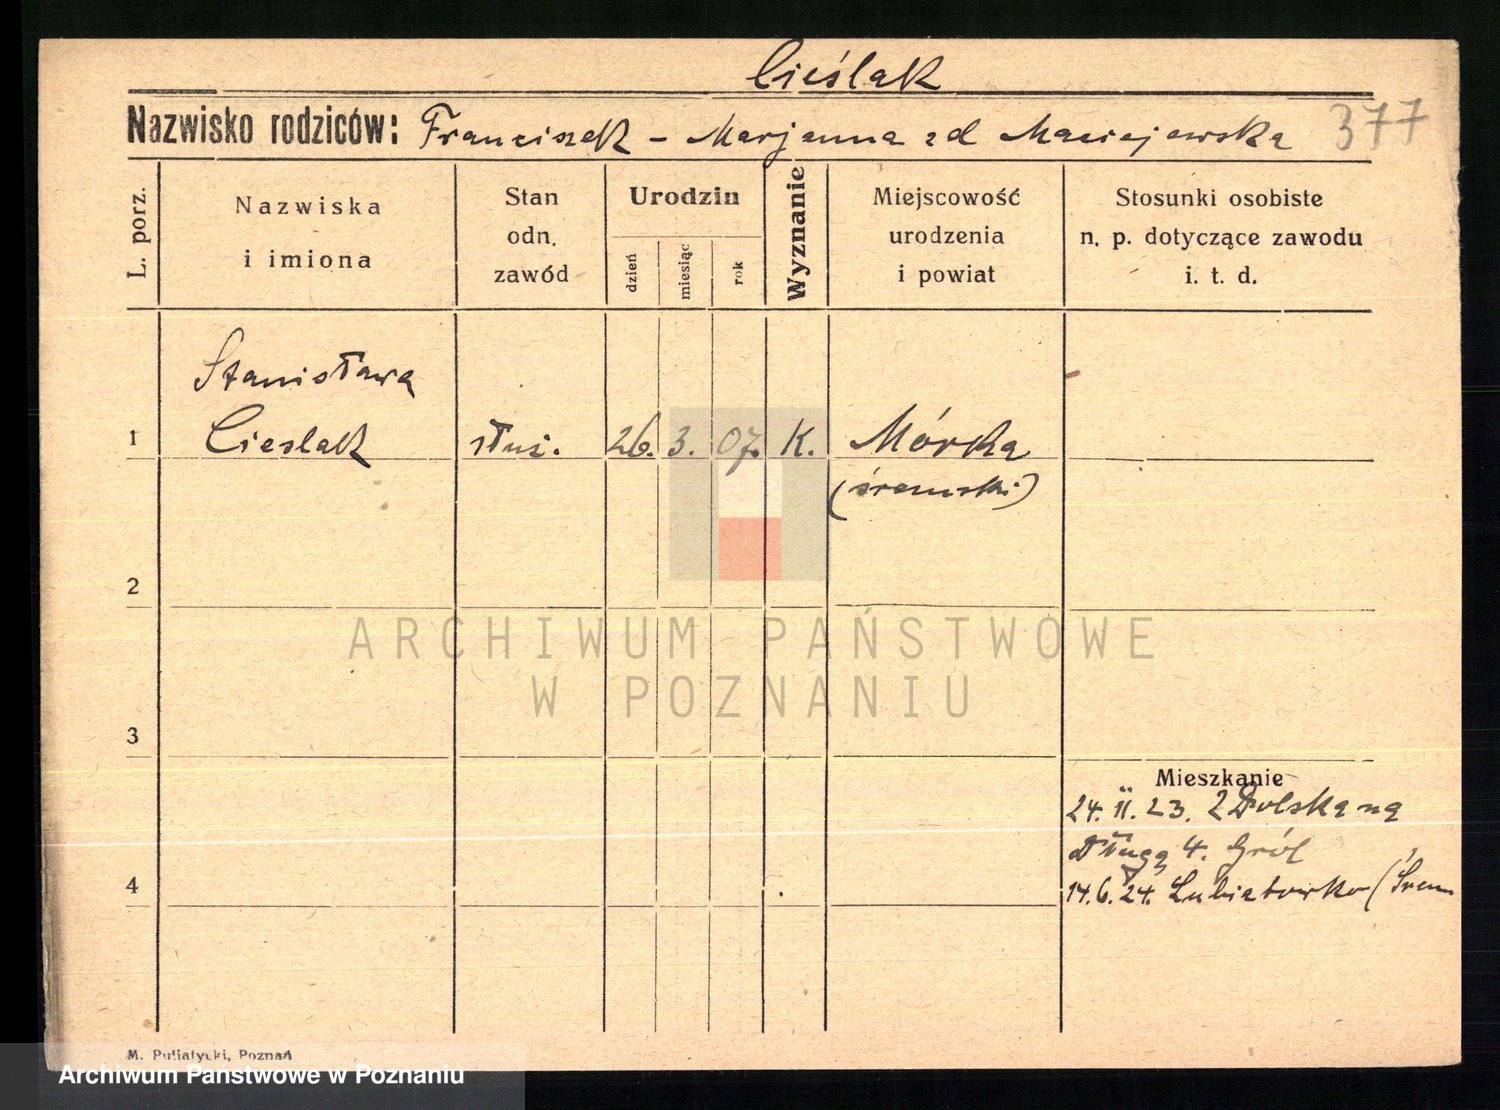 Cieślak
Nazwisko rodziców: Franciszek - Marjanna zd Maciejewska 377
L. porz.
Nazwiska
i imiona
Stan
odn.
zawód
Urodzin
dzień
miesiąc
rok
Wyznanie
Miejscowość
urodzenia
i powiat
Stosunki osobiste
n. p. dotyczące zawodu
i. t. d.
Stanisława
1 Cieslak służ. 26. 3. 07. K. Mórka
(śremski)
2
ARCHIWUM PAŃSTWOWE
W POZNANIU
3
Mieszkanie
24. II. 23. z Dolska na
Długą 4. Gról
4 14. 6. 24. Lubiatowko (Śrem
M. Putiatycki, Poznań
Archiwum Państwowe w Poznaniu